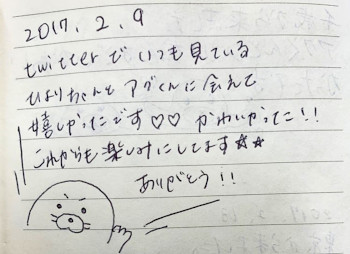 2017.2.9
twitterでいつも見ている
ひよりちゃんとアグくんに会えて
嬉しかったです♡♡ かわいかった!!
これからも楽しみにしてます☆☆
ありがとう!!